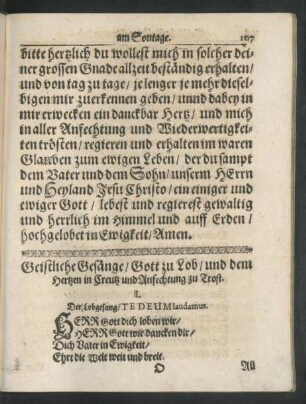 am Sontage. 107
bitte hertzlich du wollest mich in solcher dei-
ner grossen Gnade allzeit beständig erhalten/
und von tag zu tage/ je lenger je mehr diesel-
bigen mir zuerkennen geben/ unnd dabey in
mir erwecken ein danckbar Hertz/ und mich
in aller Anfechtung und Wiederwertigkei-
ten trösten/ regieren und erhalten im waren
Glauben zum ewigen Leben/ der du sampt
dem Vater und dem Sohn/ unserm HErrn
und Heyland Jesu Christo/ ein einiger und
ewiger Gott/ lebest und regierest gewaltig
und herrlich im Himmel und auff Erden/
hochgelobet in Ewigkeit/ Amen.
Geistliche Gesänge/ Gott zu Lob/ und dem
Hertzen in Creutz und Anfechtung zu Trost.
I.
Der Lobgesang/ TE DEUM laudamus.
HERR Gott dich loben wir/
HERR Gott wir dancken dir/
Dich Vater in Ewigkeit/
Ehrt die Welt weit und breit.
O All